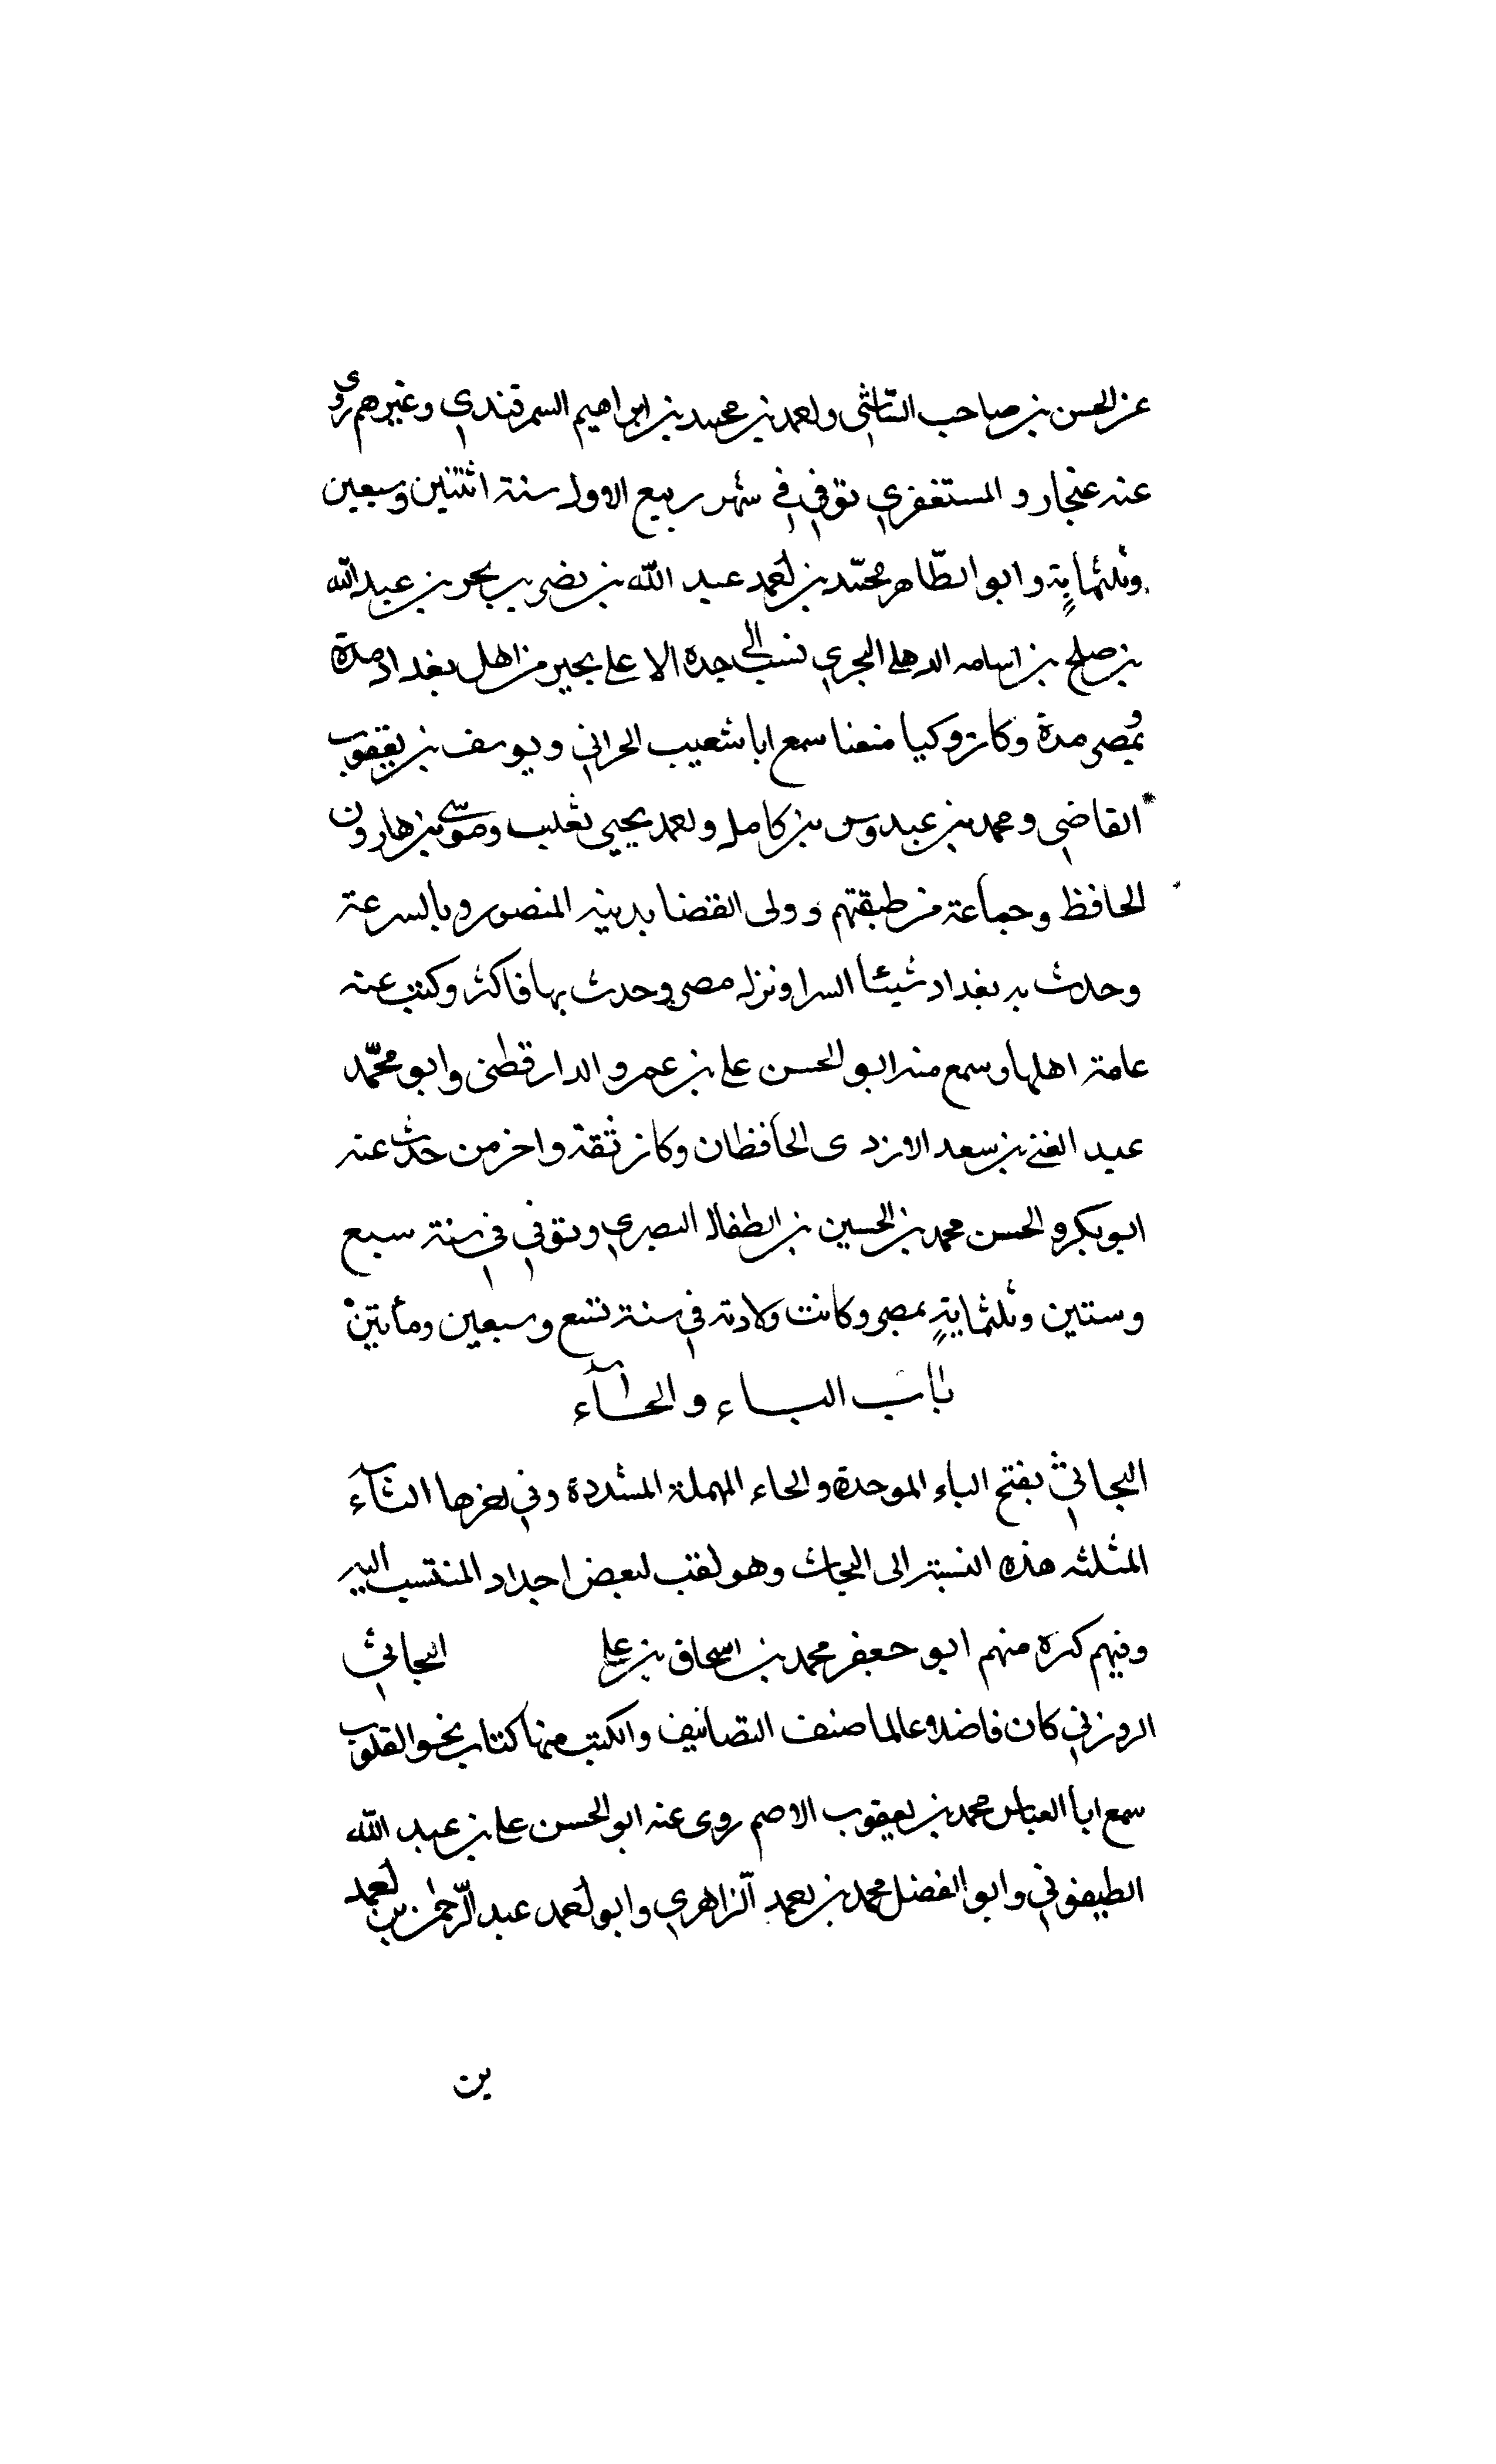 عن الحسن بن صاحب الشاشي واحمد بن محمد بن ابراهيم السمرقندي وغيرهم روى
عنه غنجار و المستغفري توفي في شهر ربيع الاول سنة اثنتين وسبعين
وثلثماية وابو الطّاهر محمّد بن احمد عبد الله بن نصر بن بحر بن عبد الله
بن صلح بن اسامه الدهلي البجري نسب الى جده الاعلى بجير من اهل بغداد مدة
وبمصر مدة وكان زوكيا متفننا سمع ابا شعيب الحراني ويوسف بن يعقوب
القاضي ومحمد بن عبدوس بن كامل واحمد يحيى ثعلب وموسى بن هارون
الحافظ وجماعة من طبقتهم وولى القضا بدينه المنصور وبالسرعة
وحدث به بغداد شيئا السرا ونزل مصر وحدث بها فاكثر وكتب عنه
عامة اهلها وسمع منه ابو الحسن على بن عمر والدارقطنى وابو محمّد
عبد الغني بن سعد الازدى الحافظان وكان ثقة واخر من حدث عنه
ابو بكر و الحسن محمد بن الحسين بن الطفال البصري وتوفي في سنة سبع
وستين وثلثمايةٍ بمصر وكانت ولادته في سنة تسع وسبعين ومأتين
باب البــاء والحــآء
البحاثي بفتح الباء الموحدة والحاء المهملة المشددة وفي اخرها الثآء
المثلثه هذه النسبة الى البحاث وهو لقب لبعض اجداد المنتسب اليه
وفيهم كثرة منهم ابو جعفر محمد بن اسحاق بن علي البحاثي
الروزني كان فاضلا وعالما صنف التصانيف والكتب منها كتاب نحو القلوب
سمع ابا العباس محمد بن يعقوب الاصم روى عنه ابو الحسن على بن عبد الله
الطيفوني وابو الفضل محمد بن احمد الزاهري وابو احمد عبد الرّحمٰن بن احمد
بن